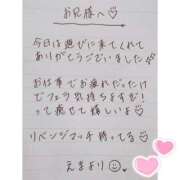 お兄様へ♡
今日は遊びに来てくれて
ありがとうございました
お仕事でお疲れだったけど
でフェラ気持ちよすぎ!
って癒せて嬉しいよ
リベンジマッチ待ってる
えまより